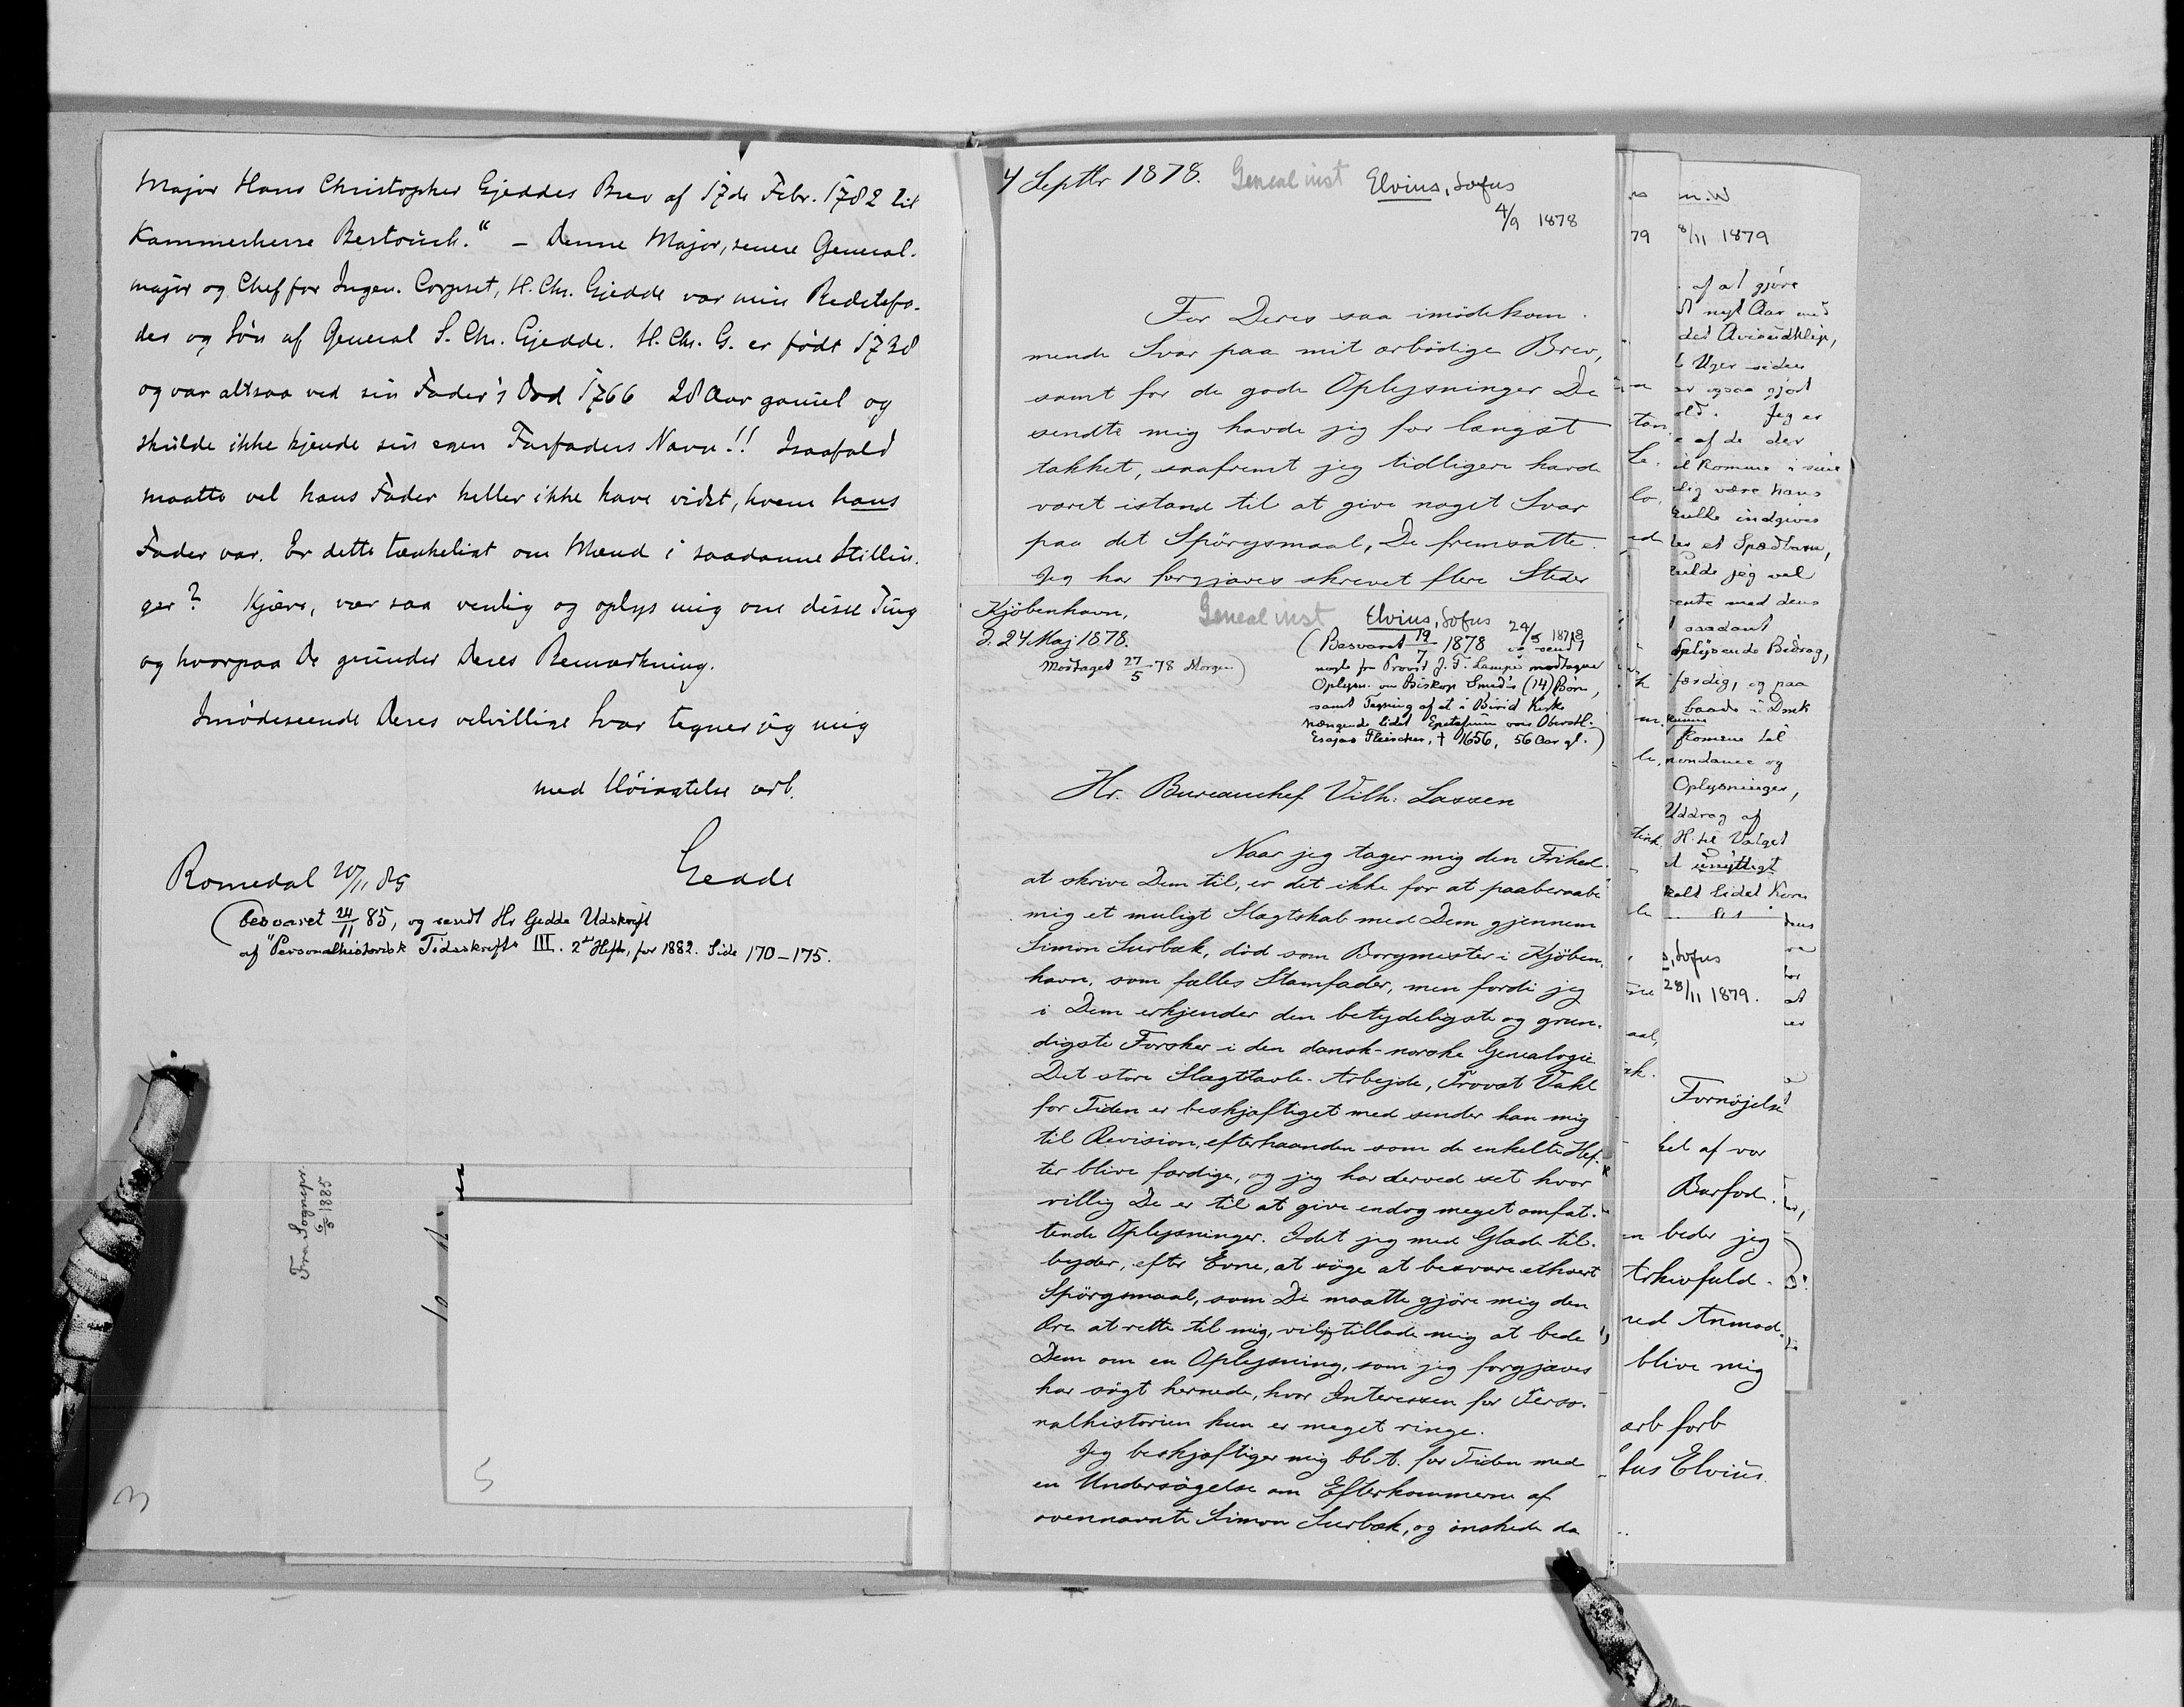 Major Hans Christopher Gjeddes Brev af 17de Febr. 1782 til
Kammerherre Bertouch." – Denne Major, senere General-
major og Chef for Ingen. Corpset, H. Chr. Gjedde var min Bedstefa-
der og Søn af General S. Chr. Gjedde. H. Chr. G. er født 1738
og var altsaa ved sin Fader's Død 1766 28 Aar gamel og
skulde ikke kjende sin egen Farfaders Navn!! Isaafald
maatte vel hans Fader heller ikke have vidst, hvem hans
Fader var. Er dette tænkeligt om Mænd i saadanne Stillin-
ger? Kjære, vær saa venlig og oplys mig om disse Ting
og hvorpaa De grunder Deres Bemærkning.
Imødeseende Deres velvillige Svar tegner jeg mig
med Høiagtelse ærb.
Gedde
Romedal 20/11 85
(besvaret 24/11 85, og sendt Hr Gedde Udskrift
af "Personalhistorisk Tidsskrift" III. 2det Hefte, for 1882. Side 170–175.
Fra Sognepr.
6/5 1885
5
3
4 Septbr 1878. Geneal inst Elvius, Sofus
4/9 1878
For Deres saa imødekom-
mende Svar paa mit ærbødige Brev,
samt for de gode Oplysninger De
sendte mig havde jeg for længst
takket, saafremt jeg tidligere havde
været istand til at give noget Svar
paa det Spörgsmaal, De fremsatte.
Jeg har forgjæves skrevet flere Steder
Kjöbenhavn, Geneal inst Elvius, Sofus
d. 24 Maj 1878. 24/5 1878
(Modtaget 27/5 -78 Morgen)
(Besvaret 19/7 1878 og sendt
nogle fra Provst J. F. Lampe modtagne
Oplysn. om Biskop Smed's (14) Børn,
samt Tegning af et i Birid Kirke
hængende lidet Epetafium over Oberstl.
Esajas Fleischer, † 1656, 56 Aar gl.)
Hr. Bureauchef Vilh. Lassen
Naar jeg tager mig den Frihed
at skrive Dem til, er det ikke for at paaberaabe
mig et muligt Slægtskab med Dem gjennem
Simon Surbæk, död som Borgmester i Kjöben-
havn, som fælles Stamfader, men fordi jeg
i Dem erkjender den betydeligste og grun-
digste Forsker i den dansk-norske Genealogie.
Det store Slægttavle-Arbejde, Provst Vahl
for Tiden er beskjæftiget med sender han mig
til Revision, efterhaanden som de enkelte Hef-
ter blive færdige, og jeg har derved set hvor
villig De er til at give endog meget omfat-
tende Oplysninger. Idet jeg med Glæde til-
byder, efter Evne, at söge at besvare ethvert
Spörgsmaal, som De maatte gjöre mig den
Ære at rette til mig, vil jeg tillade mig at bede
Dem om en Oplysning, som jeg forgjæves
har sögt hernede, hvor Interessen for Perso-
nalhistorien kun er meget ringe.
Jeg beskjæftiger mig bl. A. for Tiden med
en Undersögelse om Efterkommerne af
ovennævnte Simon Surbæk, og önskede da
8/11 1879
af at gjöre
nyt Aar med
det Avisudklip,
Uger siden
ogsaa gjort
Jeg er
af de der
komme i
være hans
indgives
et Spædbarn,
jeg vel
med dens
saadant
Oplysende Bidrag,
færdig, og paa
baade i Dmk
komme til
Oplysninger,
Uddrag af
H. til Valget
unyttigt
lidet
Sofus
28/11 1879.
Fornöjelse
af vor
Barfod.
beder jeg
Arkivfuld-
ved Anmod-
blive mig
ærb forb
Elvius.